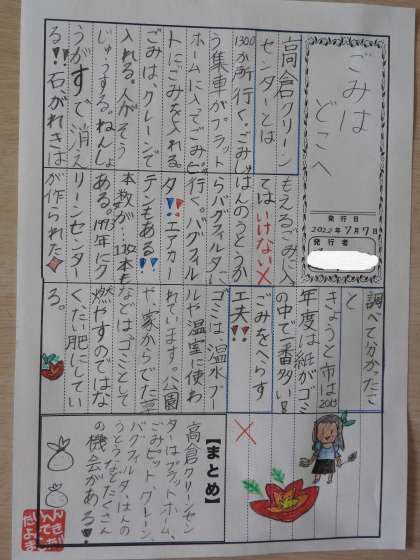 ごみは
どこへ
発行日
2022年7月7日
発行者
高倉クリーン
センターとは
1300か所行く。ごみし
う集車がプラット
ホームに入ってごみピッ
トにごみを入れる。
ごみは、クレーンで
入れる。人がそう
じゅうする。ねんしょ
うがすで消え
る!!石、がれきは
もえるごみに入
てはいけない×
はんのうとうか
らバグフィルターに
行く。バグフィル
タ!!エアカー
テンもある!!
本数が…本も
ある。年にク
リーンセンター
が作られた
調べて分かったこ
と
きょうと市は2019
年度は紙がゴミ
の中で一番多い!!
ごみをへらす
工夫!!
ゴミは温水プー
ルや温室に使わ
れています。公園
や、家からでた草
などはゴミとして
燃やすのではな
くたい肥にしてい
る。
【まとめ】
高倉クリーンセン
ターはプラットホーム、
ごみピットクレーン、
バグフィルタ、はんの
うとうなどたくさん
の機会がある!!